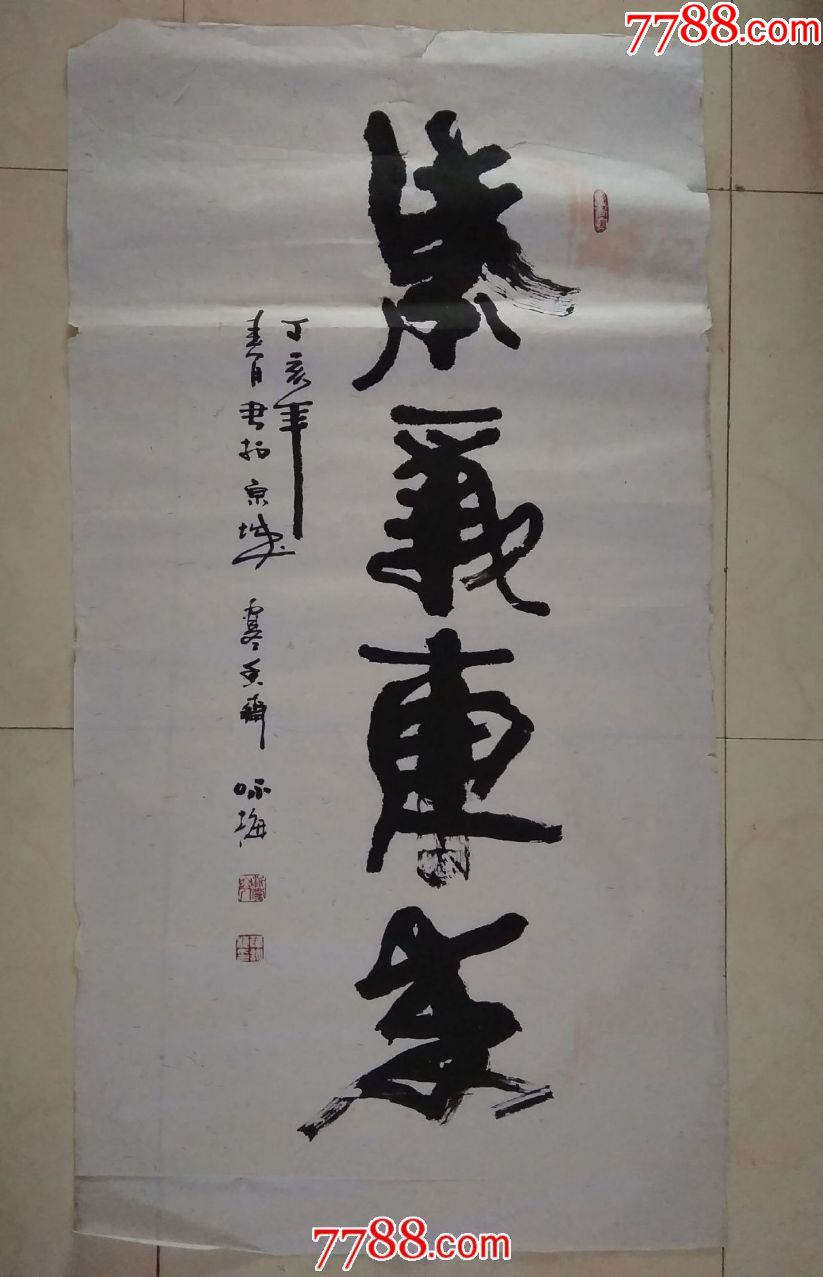 7788.com
紫氣東來
丁亥年
春月書於京城 寒香齋 咏梅
7788.com